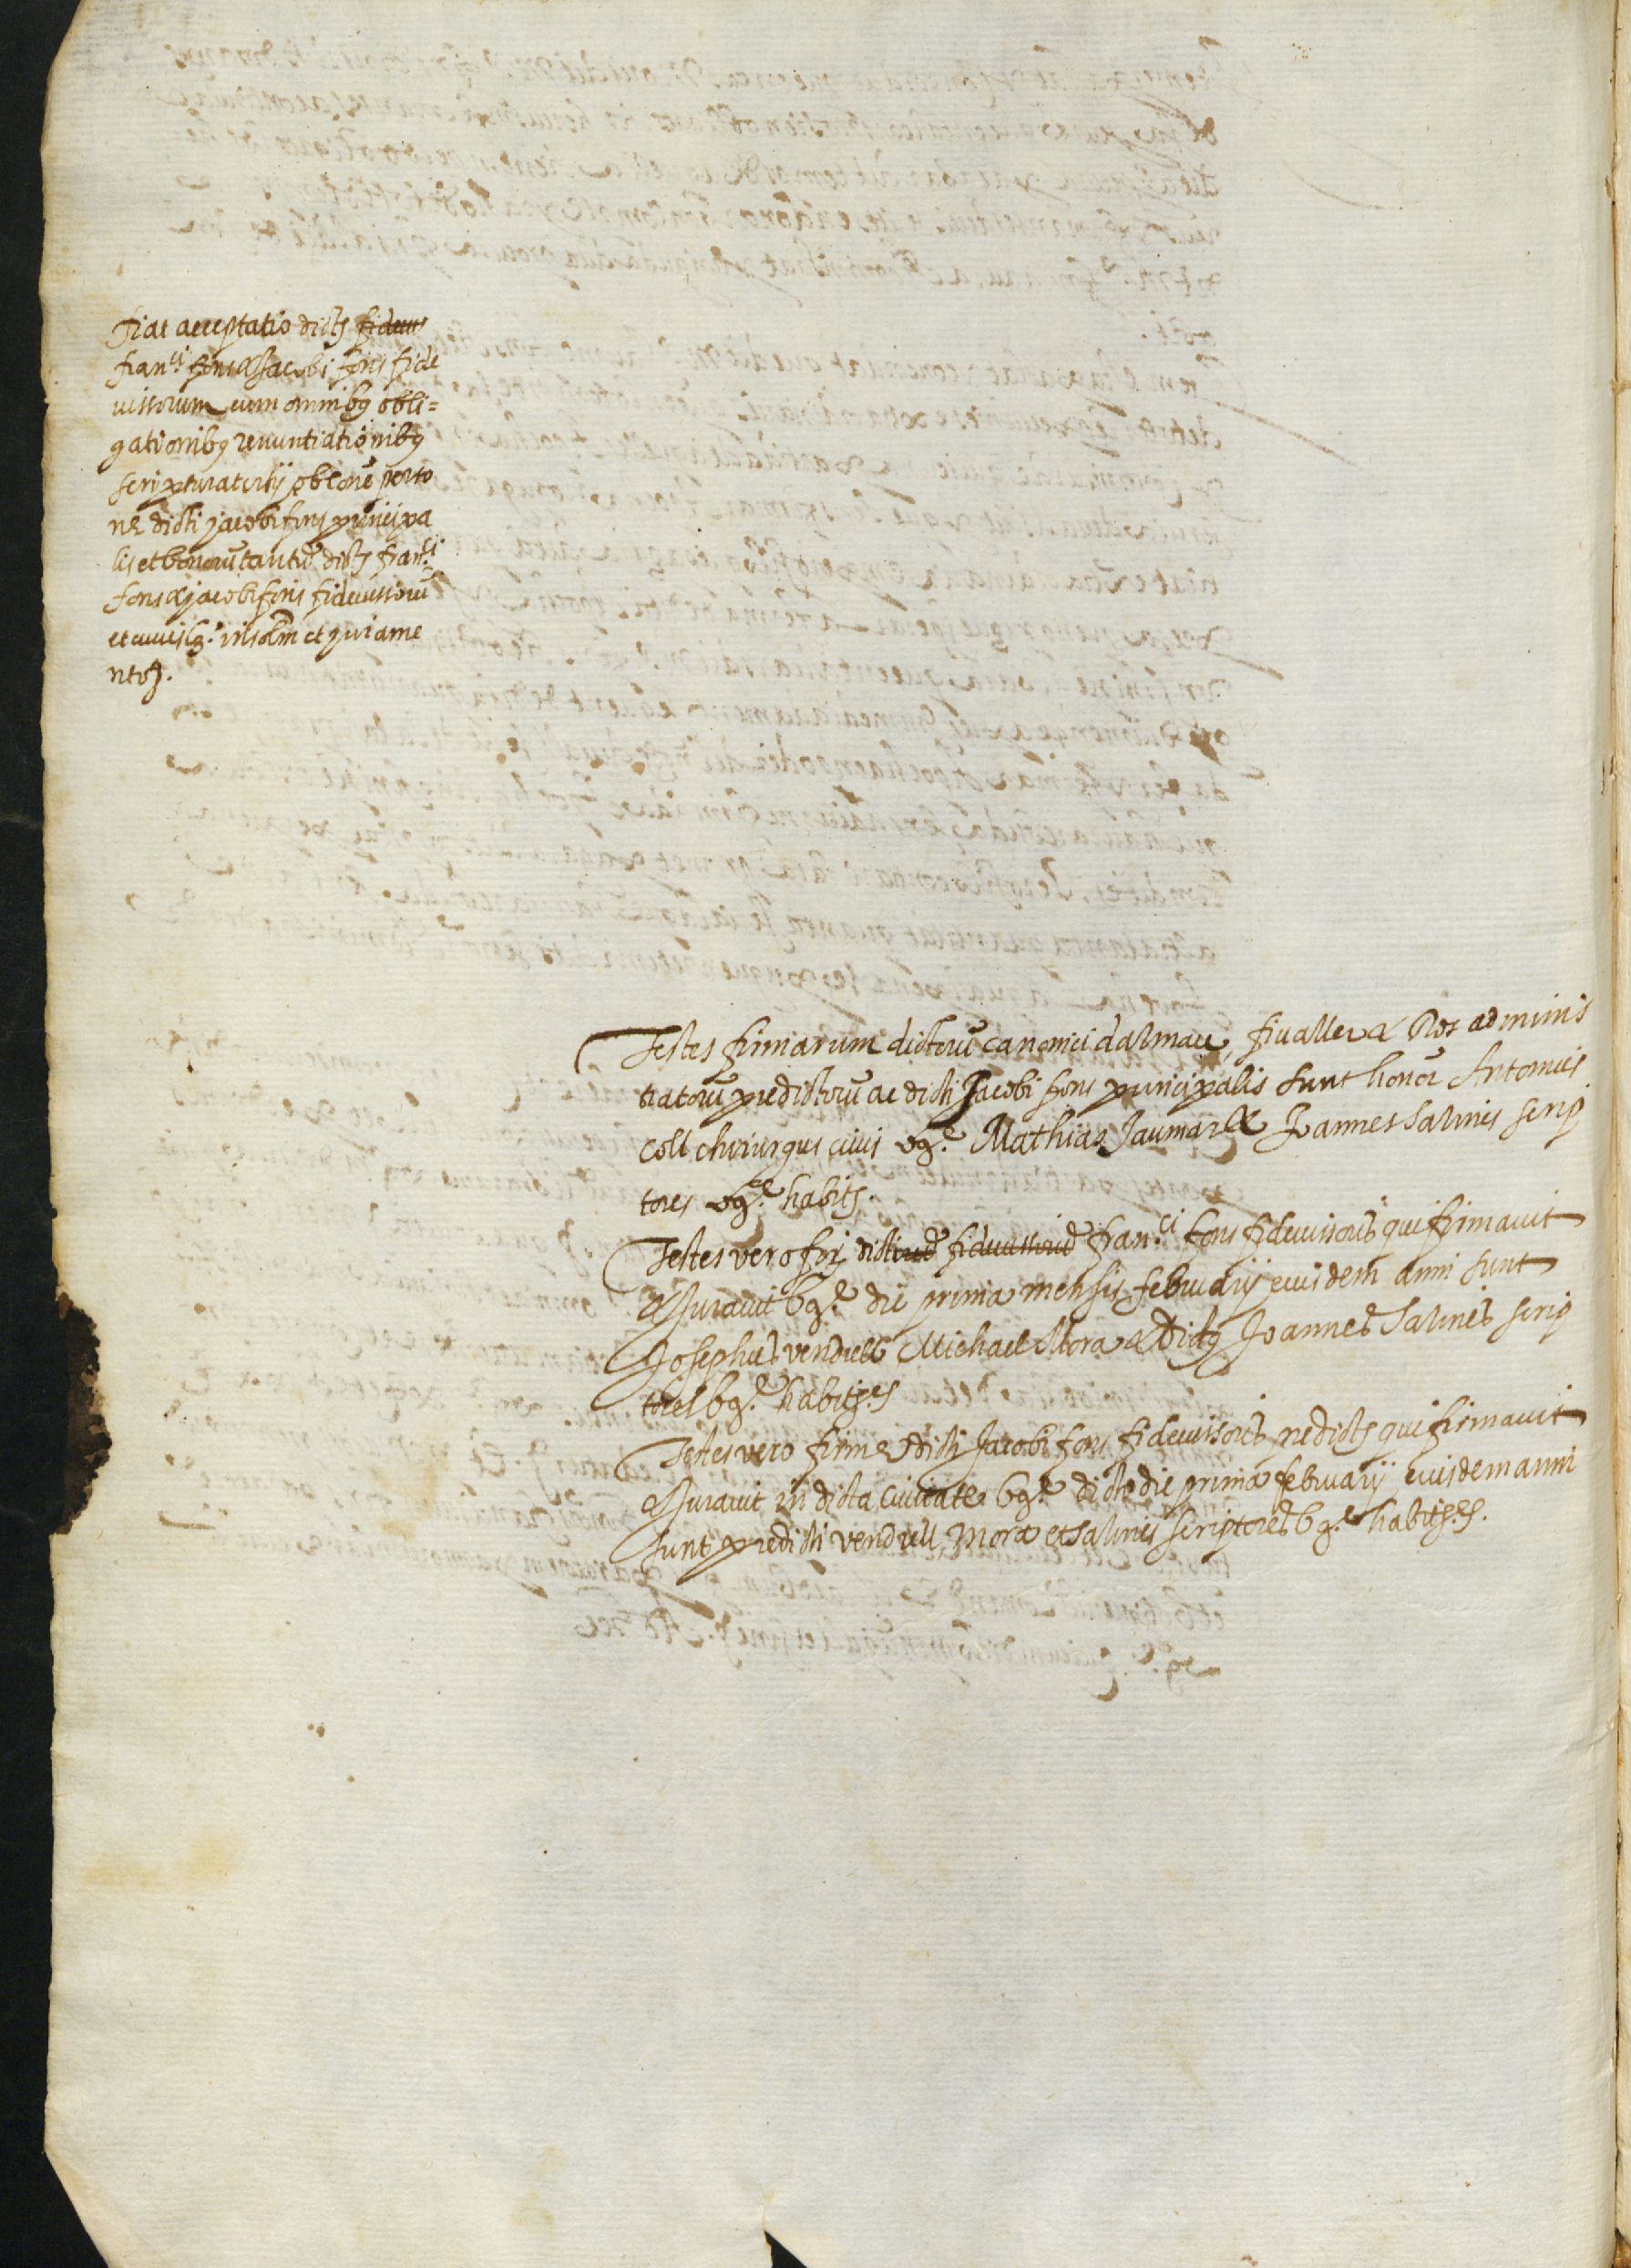 Fiat acceptatio dictꝫ fideius
fran.ci fons & Jacobi fons fide
iussorum cum omnibꝫ obli=
gationibꝫ renuntiationibꝫ
scripturatertij obleone perso
ne dicti jacobi fons principa
lis et bonorū tantū dictꝫ fran.ci
fons & jacobi fons fideiussorū
et cuiusꝫ. insolm et juiame
ntoꝫ.
Testes firmarum dictorū canonici dalmau, fiualler & Ros adminis
tratorū predictorū ac dicti Jacobi fons principalis sunt honor Antonius
Coll chirurgus ciuis bꝫe. Mathias Jaumar & Joannes Salines scrip
tores bꝫe. habitꝫ.
Testes vero firꝫ dictorū fideiussorū fran.ci fons fideiussoris qui firmauit
& Jurauit bꝫe. die prima mensis februarij eiusdem anni sunt
Josephus vendrell Michael Mora & dictꝫ Joannes Salines scrip
tores bꝫe. habitꝫes
Testes vero firme dicti Jacobi fons fideiussoris predictꝫ qui firmauit
& Jurauit in dicta ciuitate bꝫe. dicto die prima februarij eiusdem anni
sunt predicti vendrell, Mora et Salines scriptores bꝫe. habitꝫes.